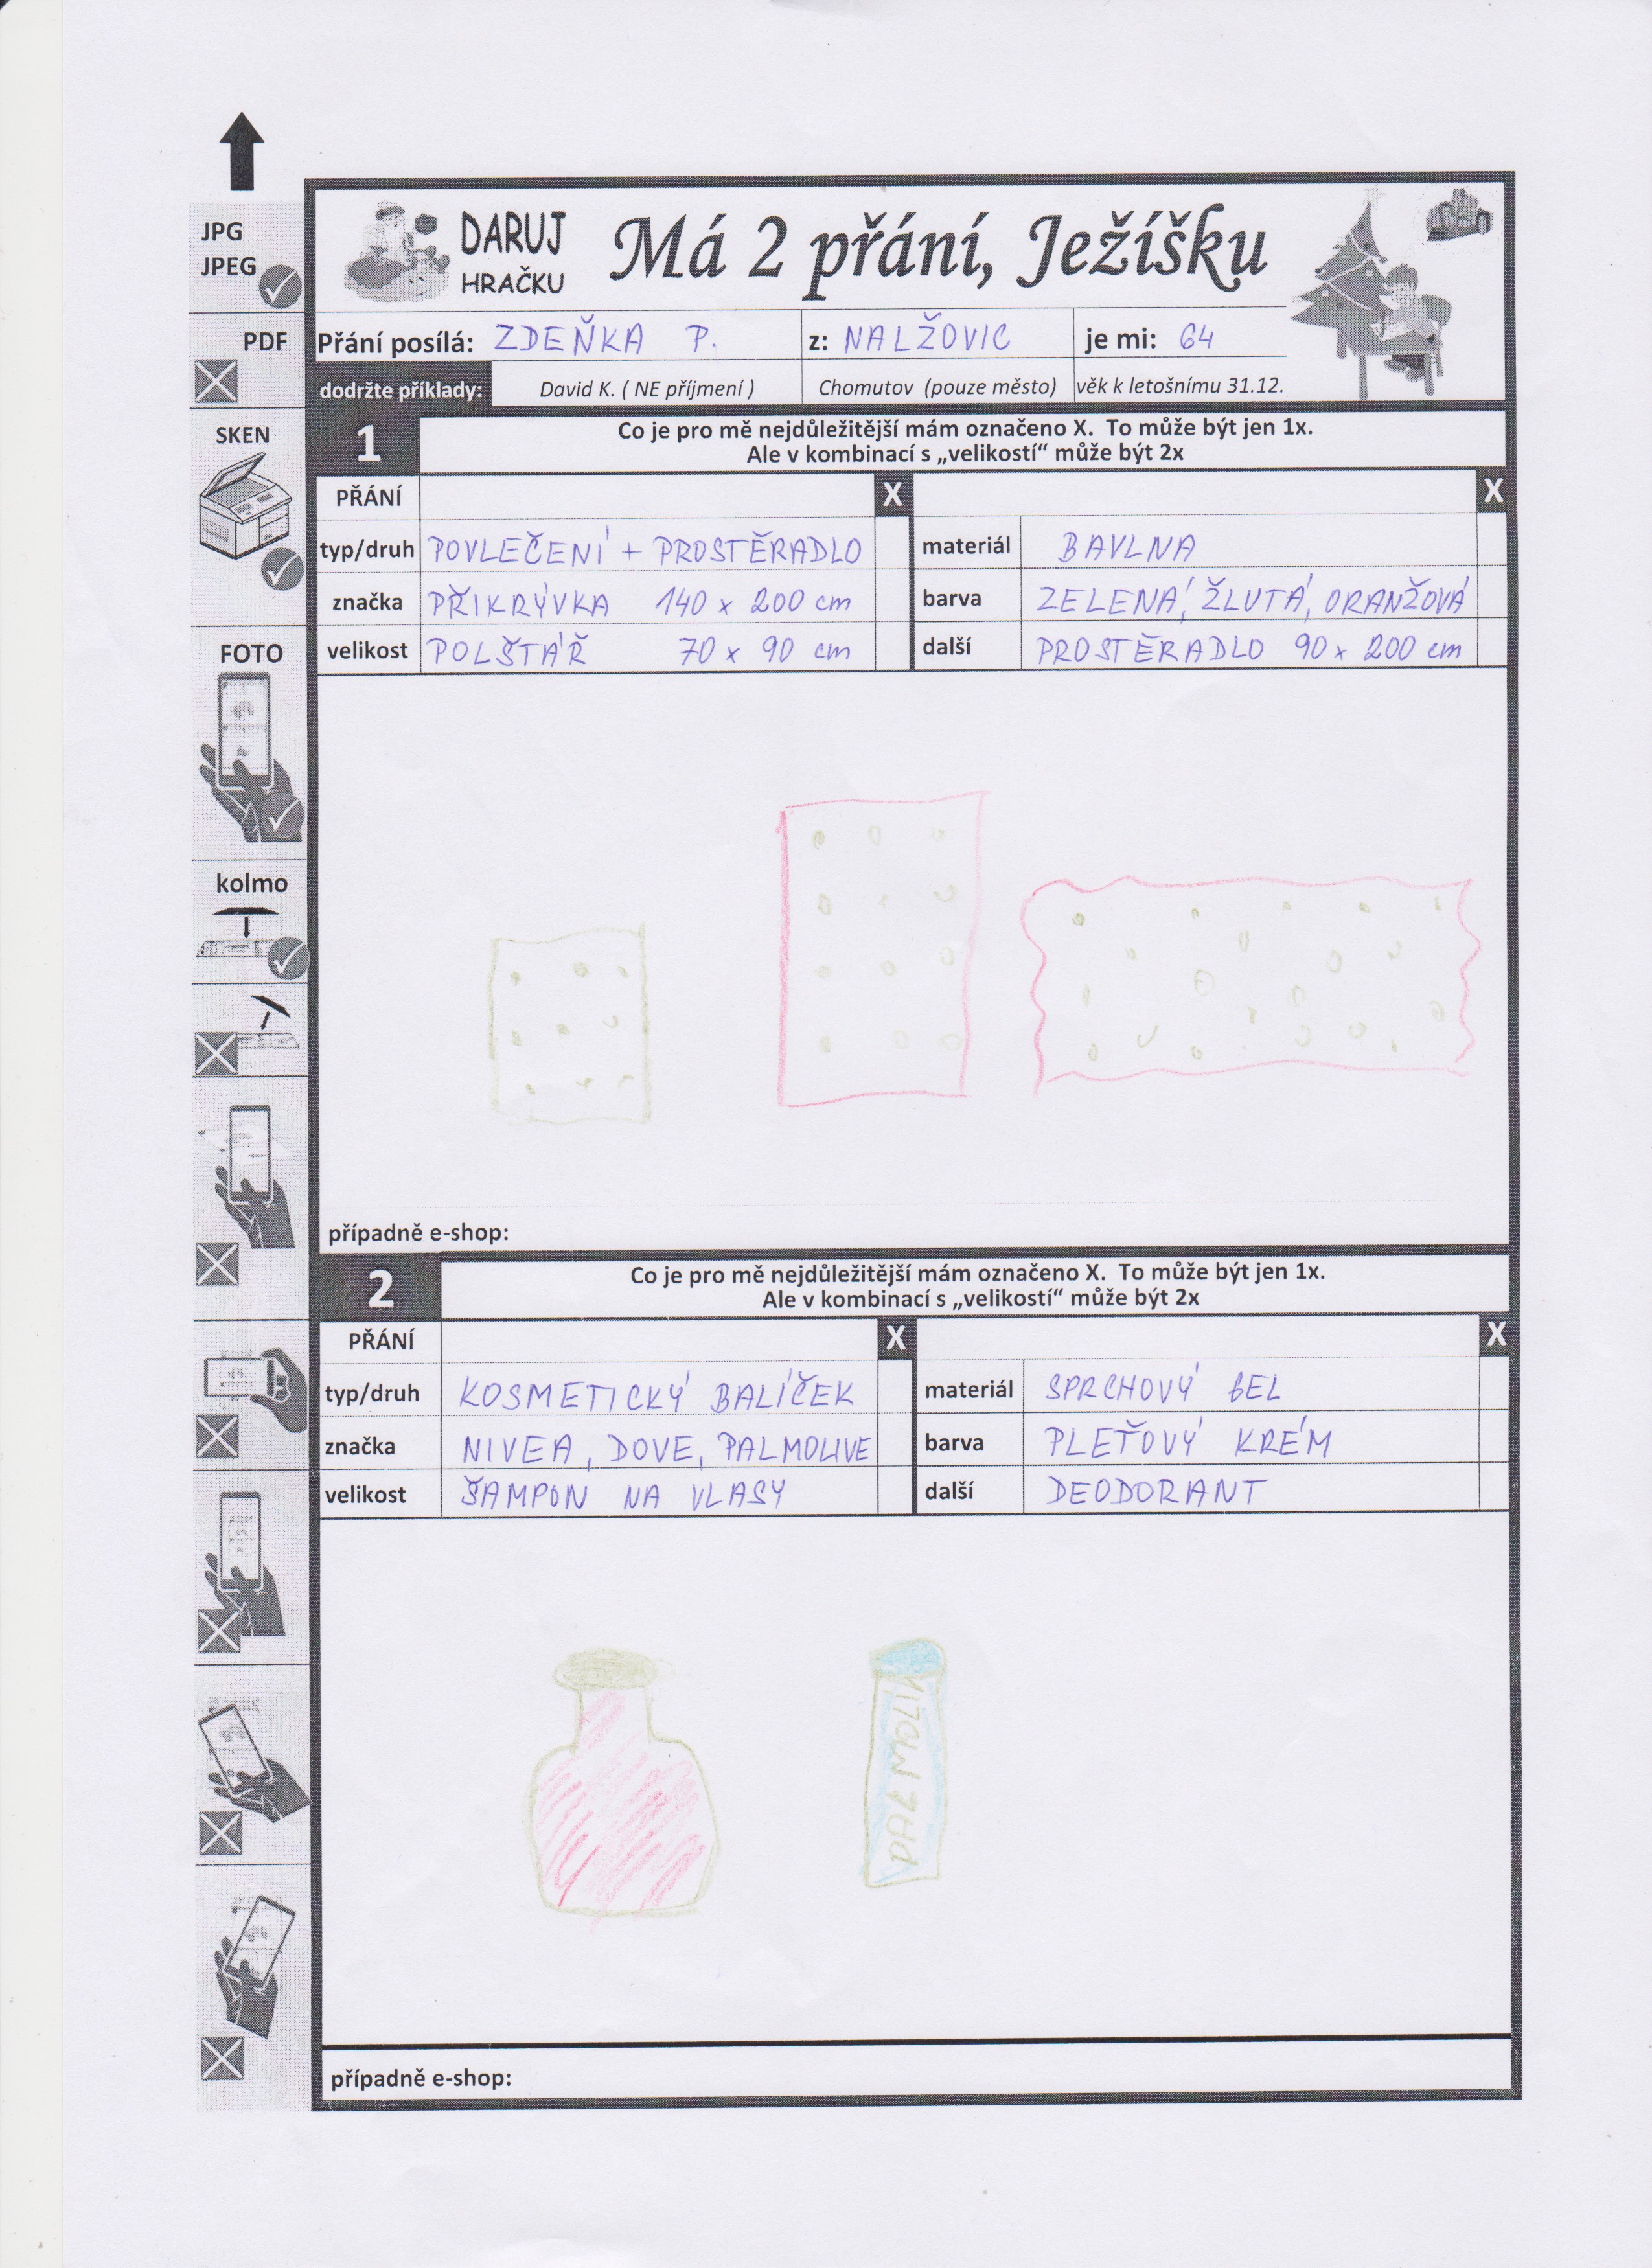 JPG
JPEG
PDF
SKEN
FOTO
kolmo
DARUJ
HRAČKU
Má 2 přání, Ježíšku
Přání posílá: ZDEŇKA P. z: NALŽOVIC je mi: 64
dodržte příklady: David K. ( NE příjmení ) Chomutov (pouze město) věk k letošnímu 31.12.
1 Co je pro mě nejdůležitější mám označeno X. To může být jen 1x.
Ale v kombinací s „velikostí“ může být 2x
PŘÁNÍ X X
typ/druh POVLEČENÍ + PROSTĚRADLO materiál BAVLNA
značka PŘIKRÝVKA 140 x 200 cm barva ZELENÁ, ŽLUTÁ, ORANŽOVÁ
velikost POLŠTÁŘ 70 x 90 cm další PROSTĚRADLO 90 x 200 cm
případně e-shop:
2 Co je pro mě nejdůležitější mám označeno X. To může být jen 1x.
Ale v kombinací s „velikostí“ může být 2x
PŘÁNÍ X X
typ/druh KOSMETICKÝ BALÍČEK materiál SPRCHOVÝ GEL
značka NIVEA, DOVE, PALMOLIVE barva PLEŤOVÝ KRÉM
velikost ŠAMPON NA VLASY další DEODORANT
PALMOLIV
případně e-shop: